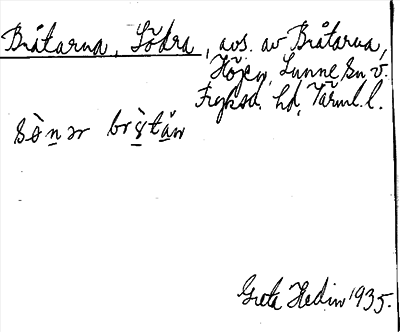 Bråtarna, Södra, avs. av Bråtarna,
Höjen, Sunne sn v.
Fryksd. hd, Värml. l.
Greta Hedin 1935.